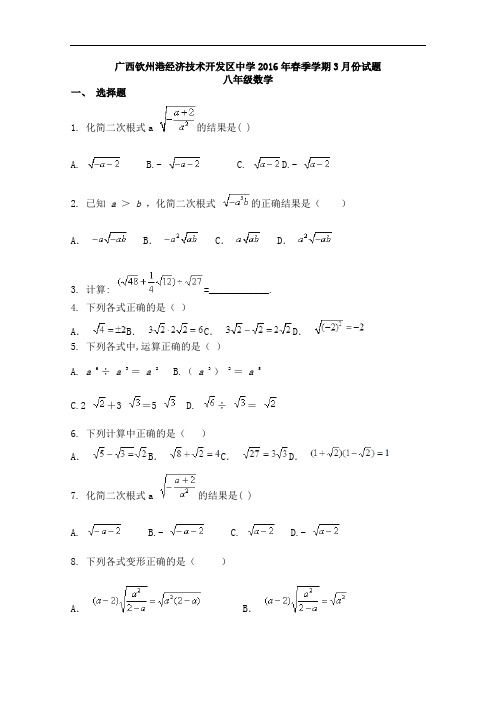 广西钦州港经济技术开发区中学2016年春季学期3月份试题
八年级数学
一、 选择题
1. 化简二次根式a √(-(a+2)/a²) 的结果是( )
A. √(-a-2) B.- √(-a-2) C. √(a-2) D.- √(a-2)
2. 已知 a > b ，化简二次根式 √(-a³b) 的正确结果是（ ）
A． -a√(-ab) B． -a²√(ab) C． a√(ab) D． a²√(-ab)
3. 计算: (√48+1/4√12)÷√27 =___________.
4. 下列各式正确的是（ ）
A． √4=±2 B． 3√2·2√2=6 C． 3√2-√2=2√2 D． √((-2)²)=-2
5. 下列各式中,运算正确的是（ ）
A. a ⁶ ÷ a ³ = a ² B.（ a ³ ） ² = a ⁵
C.2 √2 +3 √3 =5 √3 D. √6 ÷ √3 = √2
6. 下列计算中正确的是（ ）
A． √5-√3=√2 B． √8+√2=4 C． √27=3√3 D． (1+√2)(1-√2)=1
7. 化简二次根式a √(-(a+2)/a²) 的结果是( )
A. √(-a-2) B.- √(-a-2) C. √(a-2) D.- √(a-2)
8. 下列各式变形正确的是（ ）
A． (a-2)√(a²/(2-a))=√(a²(2-a)) B． (a-2)√(a²/(2-a))=√(a²)